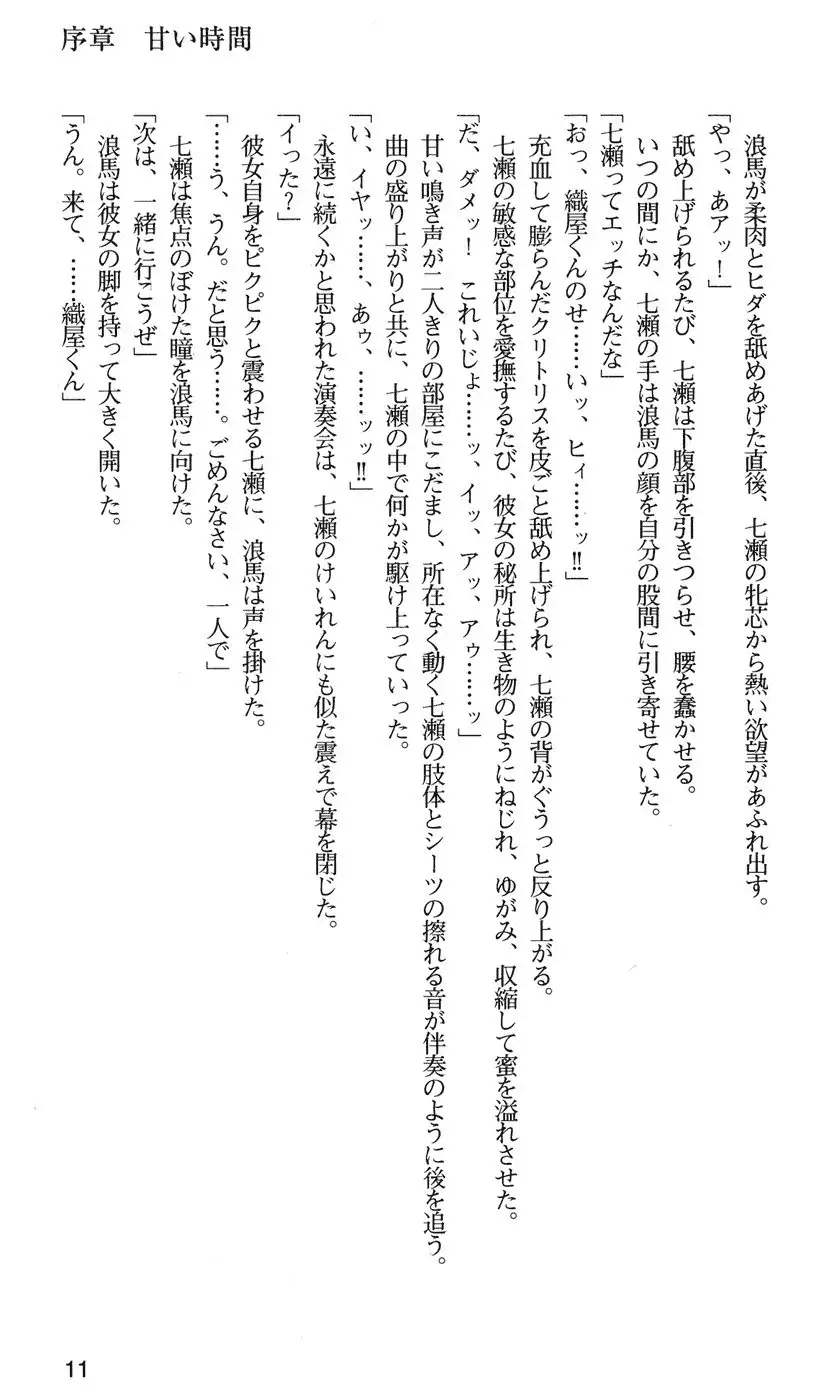 序章　甘い時間
浪馬が柔肉とヒダを舐めあげた直後、七瀬の牝芯から熱い欲望があふれ出す。
「やっ、あアッ！」
舐め上げられるたび、七瀬は下腹部を引きつらせ、腰を蠢かせる。
いつの間にか、七瀬の手は浪馬の顔を自分の股間に引き寄せていた。
「七瀬ってエッチなんだな」
「おっ、織屋くんのせ……いッ、ヒィ……ッ!!」
充血して膨らんだクリトリスを皮ごと舐め上げられ、七瀬の背がぐうっと反り上がる。
七瀬の敏感な部位を愛撫するたび、彼女の秘所は生き物のようにねじれ、ゆがみ、収縮して蜜を溢れさせた。
「だ、ダメッ！　これいじょ……ッ、イッ、アッ、アゥ……ッ」
甘い鳴き声が二人きりの部屋にこだまし、所在なく動く七瀬の肢体とシーツの擦れる音が伴奏のように後を追う。
曲の盛り上がりと共に、七瀬の中で何かが駆け上っていった。
「い、イヤッ……、あゥ、……ッッ!!」
永遠に続くかと思われた演奏会は、七瀬のけいれんにも似た震えで幕を閉じた。
「イった？」
彼女自身をピクピクと震わせる七瀬に、浪馬は声を掛けた。
「……う、うん。だと思う……。ごめんなさい、一人で」
七瀬は焦点のぼけた瞳を浪馬に向けた。
「次は、一緒に行こうぜ」
浪馬は彼女の脚を持って大きく開いた。
「うん。来て、……織屋くん」
11